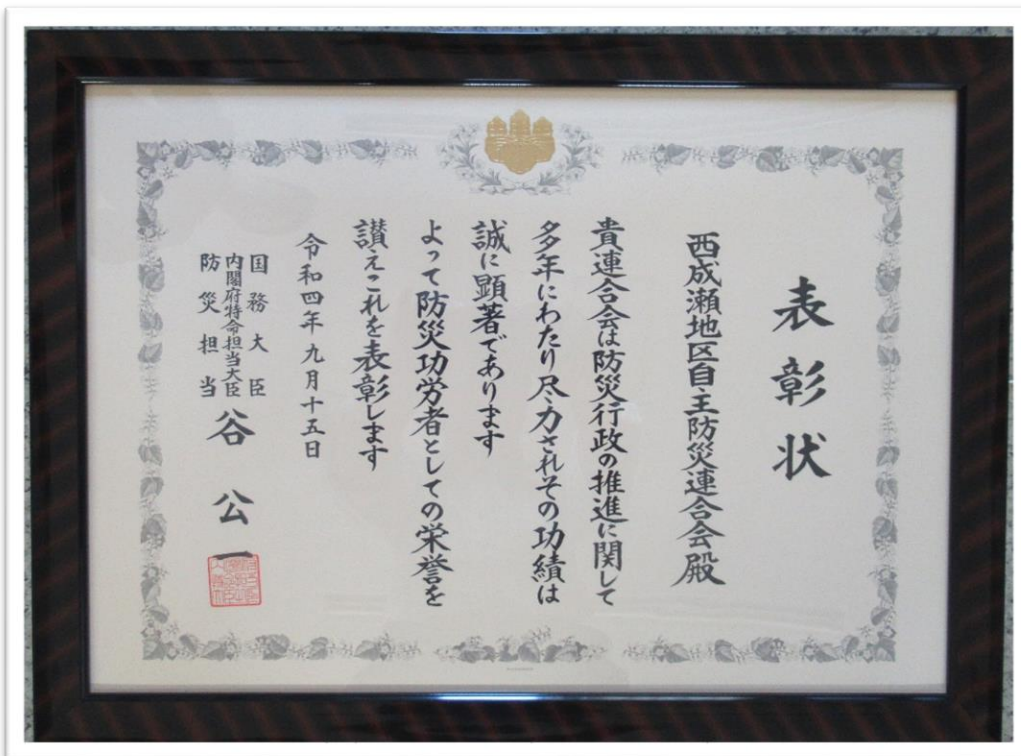 表彰状
西成瀬地区自主防災連合会殿
貴連合会は防災行政の推進に関して
多年にわたり尽力されその功績は
誠に顕著であります
よって防災功労者としての栄誉を
讃えこれを表彰します
令和四年九月十五日
国務大臣
内閣府特命担当大臣
防災担当
谷公一